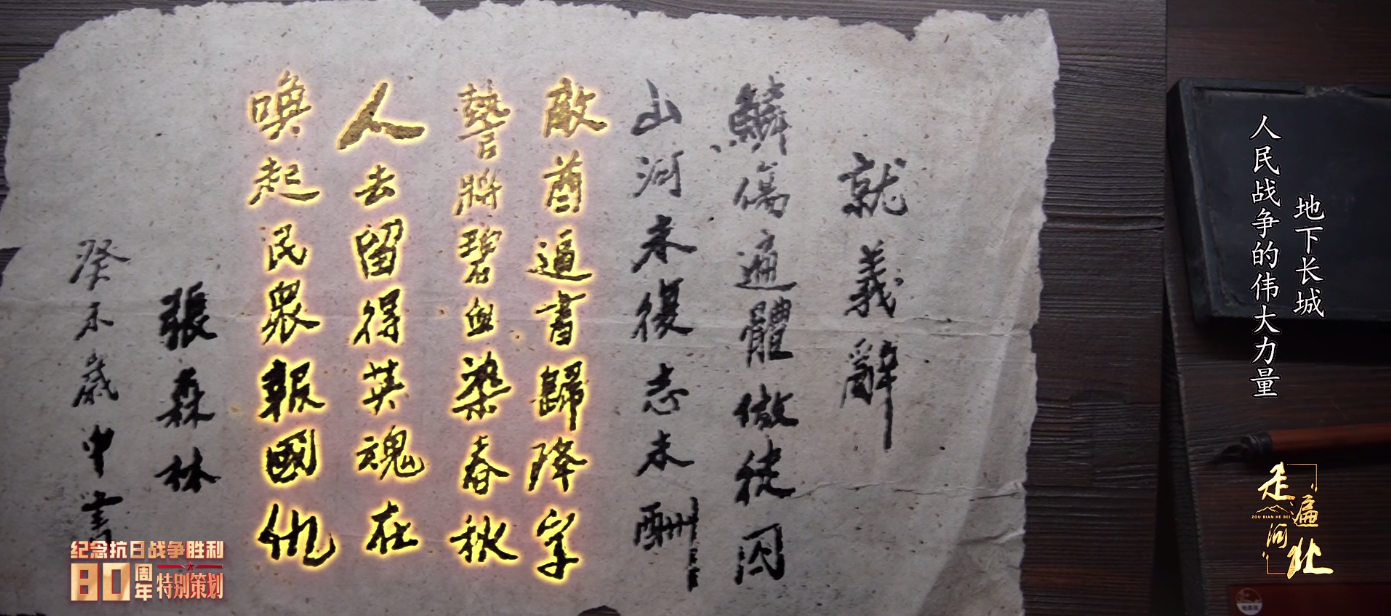 就義辭
鱗傷遍體做徒囚
山河未復志未酬
敵酋逼書歸降字
誓將碧血染春秋
人去留得英魂在
喚起民衆報國仇
張森林
癸未歲中書
地下长城
人民战争的伟大力量
走遍河北
ZOU BIAN HE BEI
纪念抗日战争胜利
80周年特别策划